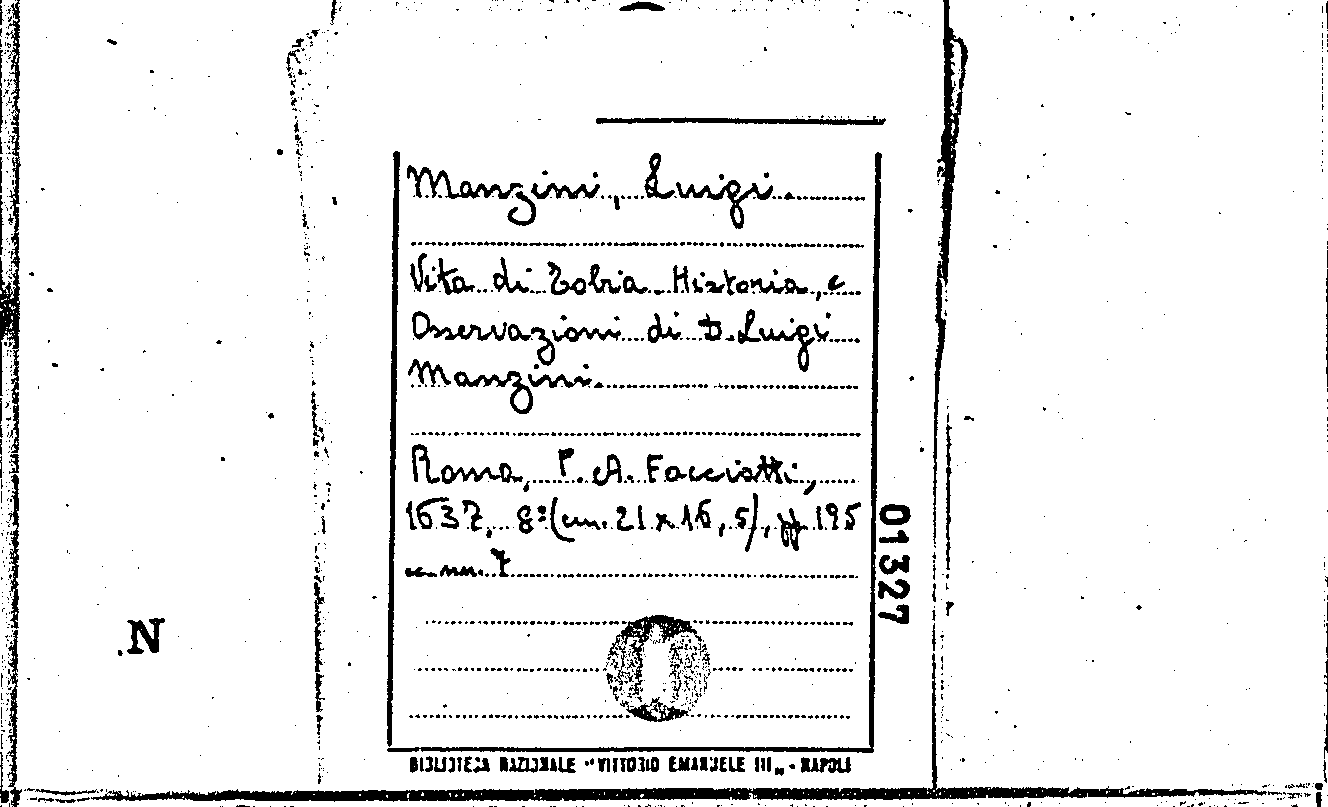 Manzini, Luigi.
Vita di Tobia. Historia, e
Osservazioni di D. Luigi
Manzini.
Roma, P. A. Facciotti,
1637, 8º (cm. 21 x 16, 5), pp 195
c. nn. 7
01327
.N
BIBLIOTECA NAZIONALE "VITTORIO EMANUELE III„ - NAPOLI